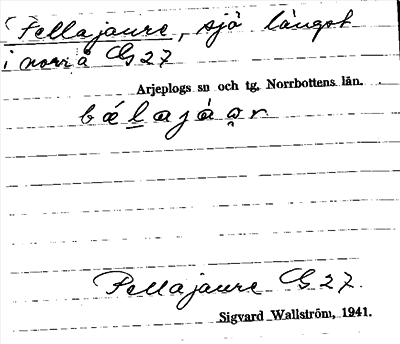 Pellajaure, sjö längst
i norr å G 27
Arjeplogs sn och tg, Norrbottens län.
bálajáor
Pellajaure G 27.
Sigvard Wallström, 1941.